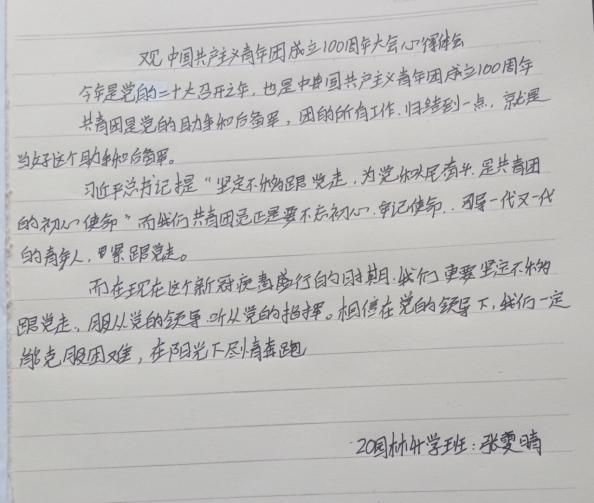 观中国共产主义青年团成立100周年大会心得体会
今年是党的二十大召开之年，也是中国共产主义青年团成立100周年
共青团是党的助手和后备军，团的所有工作，归结到一点，就是
当好这个助手和后备军。
习近平总书记提“坚定不移跟党走，为党和人民奋斗，是共青团
的初心使命”而我们共青团员正是要不忘初心，牢记使命，引导一代又一代
的青年人，紧跟党走。
而在现在这个新冠病毒盛行的时期，我们更要坚定不移
跟党走，服从党的领导，听从党的指挥。相信在党的领导下，我们一定
能克服困难，在阳光下尽情奔跑
20园林升学班：张雯晴